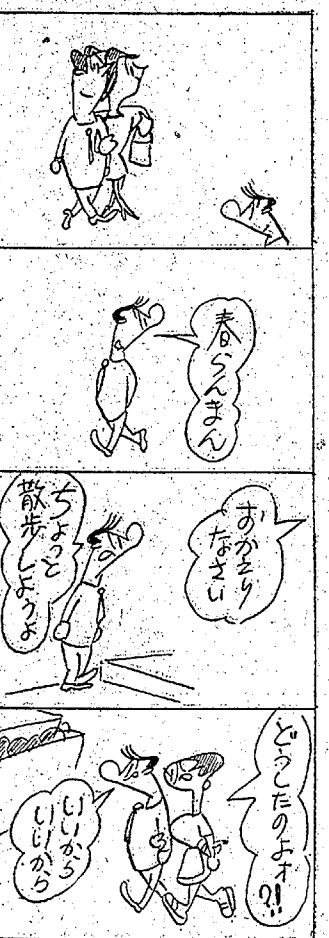 春らんまん
おかえり
なさい
ちょっと
散歩しようよ
どうしたのよォ?!
いいから
いいから